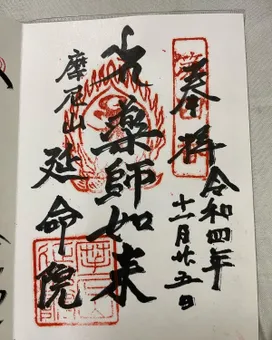 奉拝
令和四年
十一月廿五日
薬師如来
摩尼山
延命院